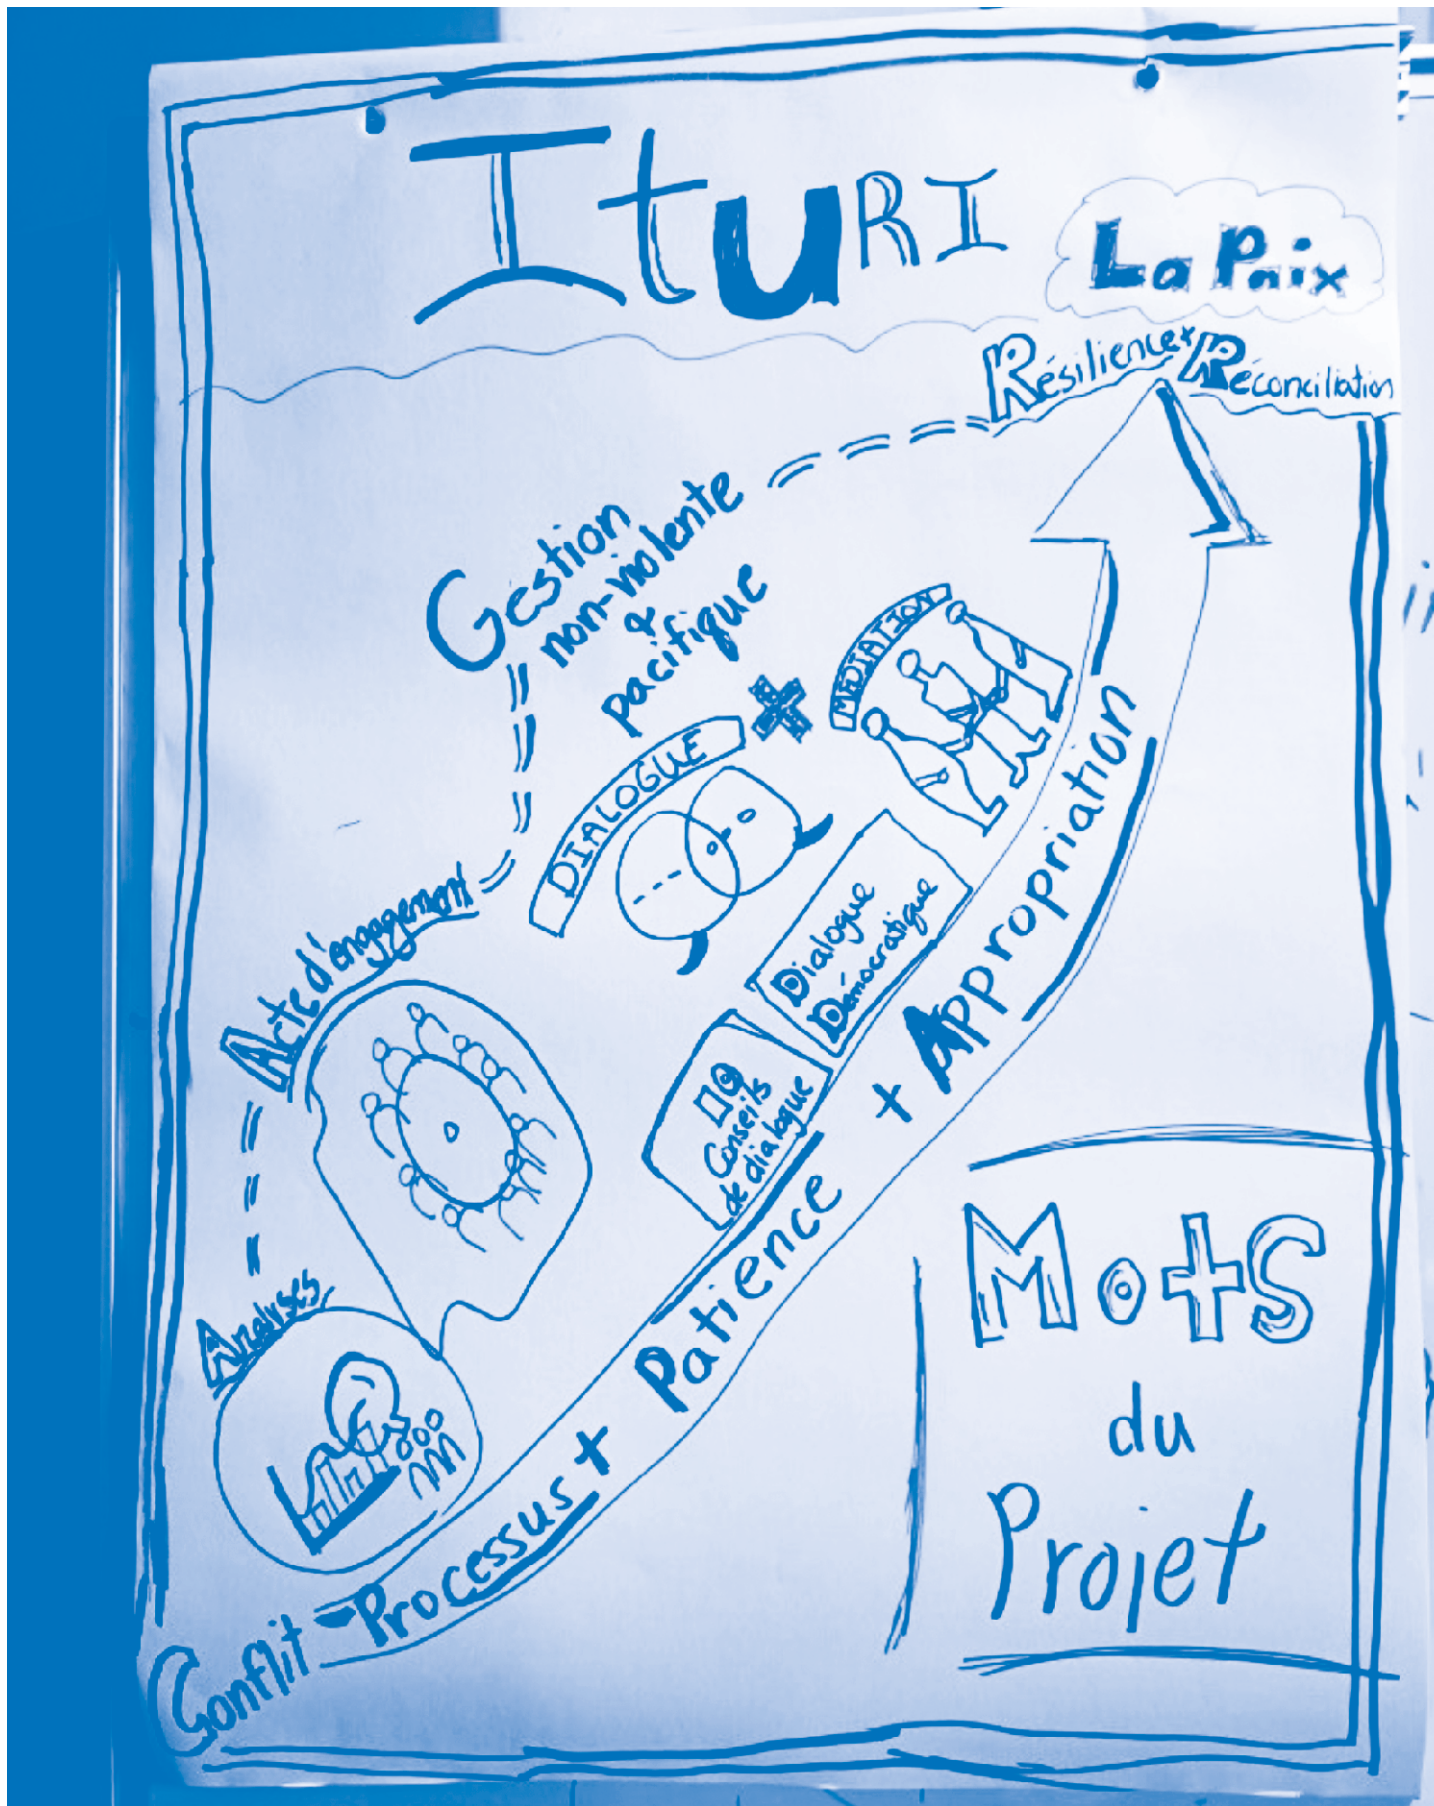 ItuRI
La Paix
Résilience + Réconciliation
Gestion
non-violente
&
pacifique
DIALOGUE
+
MÉDIATION
Acte d'engagement
Dialogue
Démocratique
Conseils
de dialogue
Analyses
Conflit - Processus + Patience + Appropriation
MotS
du
Projet